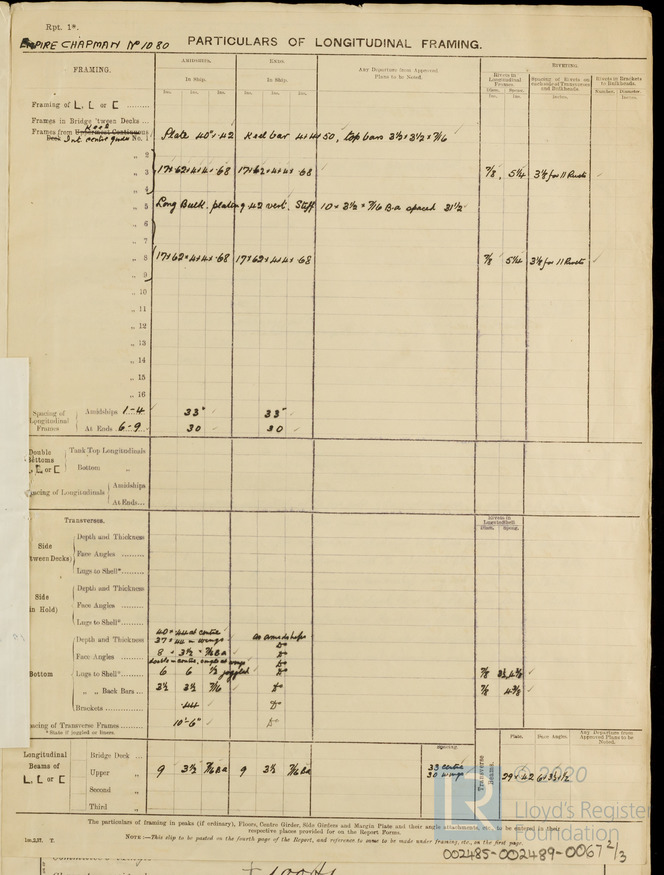 Rpt. 1*.
EMPIRE CHAPMAN Nº 1080 PARTICULARS OF LONGITUDINAL FRAMING.
FRAMING. AMIDSHIPS. ENDS. Any Departure from Approved Plans to be Noted. RIVETING.
In Ship. In Ship. Rivets in Longitudinal Frames. Spacing of Rivets on each side of Transverses and Bulkheads. Rivets in Brackets to Bulkheads.
Ins. Ins. Ins. Ins. Ins. Ins. Diam. Ins. Number. Diameter.
Framing of L, [ or [ .........
Frames in Bridge 'tween Decks ...
Frames from Uppermost Continuous Deck No. 1 Plate 40" × .42 Keel bar 4 × 4 × 50, top bars 3½ × 3½ × 7/16
" 2
" 3 17 × 62 × 4 × 4 × .68 17 × 62 × 4 × 4 × .68 7/8, 5¼ 3⅛ for 11 Rivets
" 4
" 5 Long Bulk. plating .42 vert. Stiff 10 × 3½ × 7/16 B.a spaced 31½
" 6
" 7
" 8 17 × 62 × 4 × 4 × .68 17 × 62 × 4 × 4 × .68 7/8 5¼ 3⅛ for 11 Rivets
" 9
" 10
" 11
" 12
" 13
" 14
" 15
" 16
Spacing of Longitudinal Frames Amidships 1-4 33" 33"
At Ends 6-9 30 30
Double Bottoms L, [ or [ Tank Top Longitudinals
Bottom "
Spacing of Longitudinals Amidships
At Ends...
Transverses. Rivets in Longitudinals
Side (tween Decks) Depth and Thickness
Face Angles .........
Lugs to Shell*.........
Side (in Hold) Depth and Thickness
Face Angles .........
Lugs to Shell*.........
40 × .44 at centre
Bottom Depth and Thickness 37 × .44 in wings as amidships
Face Angles ......... 8 × 3½ × 7/16 Ba Do
double in centre, single at wings Do
Lugs to Shell*...... 6 6 ½ joggled Do 7/8
" " Back Bars ... 3½ 3½ 7/16 Do 7/8 4⅜
Brackets ......... .44 Do
Spacing of Transverse Frames...... 10'-6" Do
* State if joggled or liners.
Plate. Face Angles. Any Departure from Approved Plans to be Noted.
Longitudinal Beams of L, [ or [ Bridge Deck ... Spacing
Upper " 9 3½ 7/16 Ba 9 3½ 7/16 Ba 33 centre 30 wings Transverse Beams. 29 × .42 6 × 3½ × ½
Second "
Third "
© 2020
Lloyd's Register
Foundation
The particulars of framing in peaks (if ordinary), Floors, Centre Girder, Side Girders and Margin Plate and their angle attachments, etc., to be entered in their
respective places provided for on the Report Forms.
NOTE:—This slip to be pasted on the fourth page of the Report, and reference to same to be made under framing, etc., on the first page.
002485-002489-0067 2/3